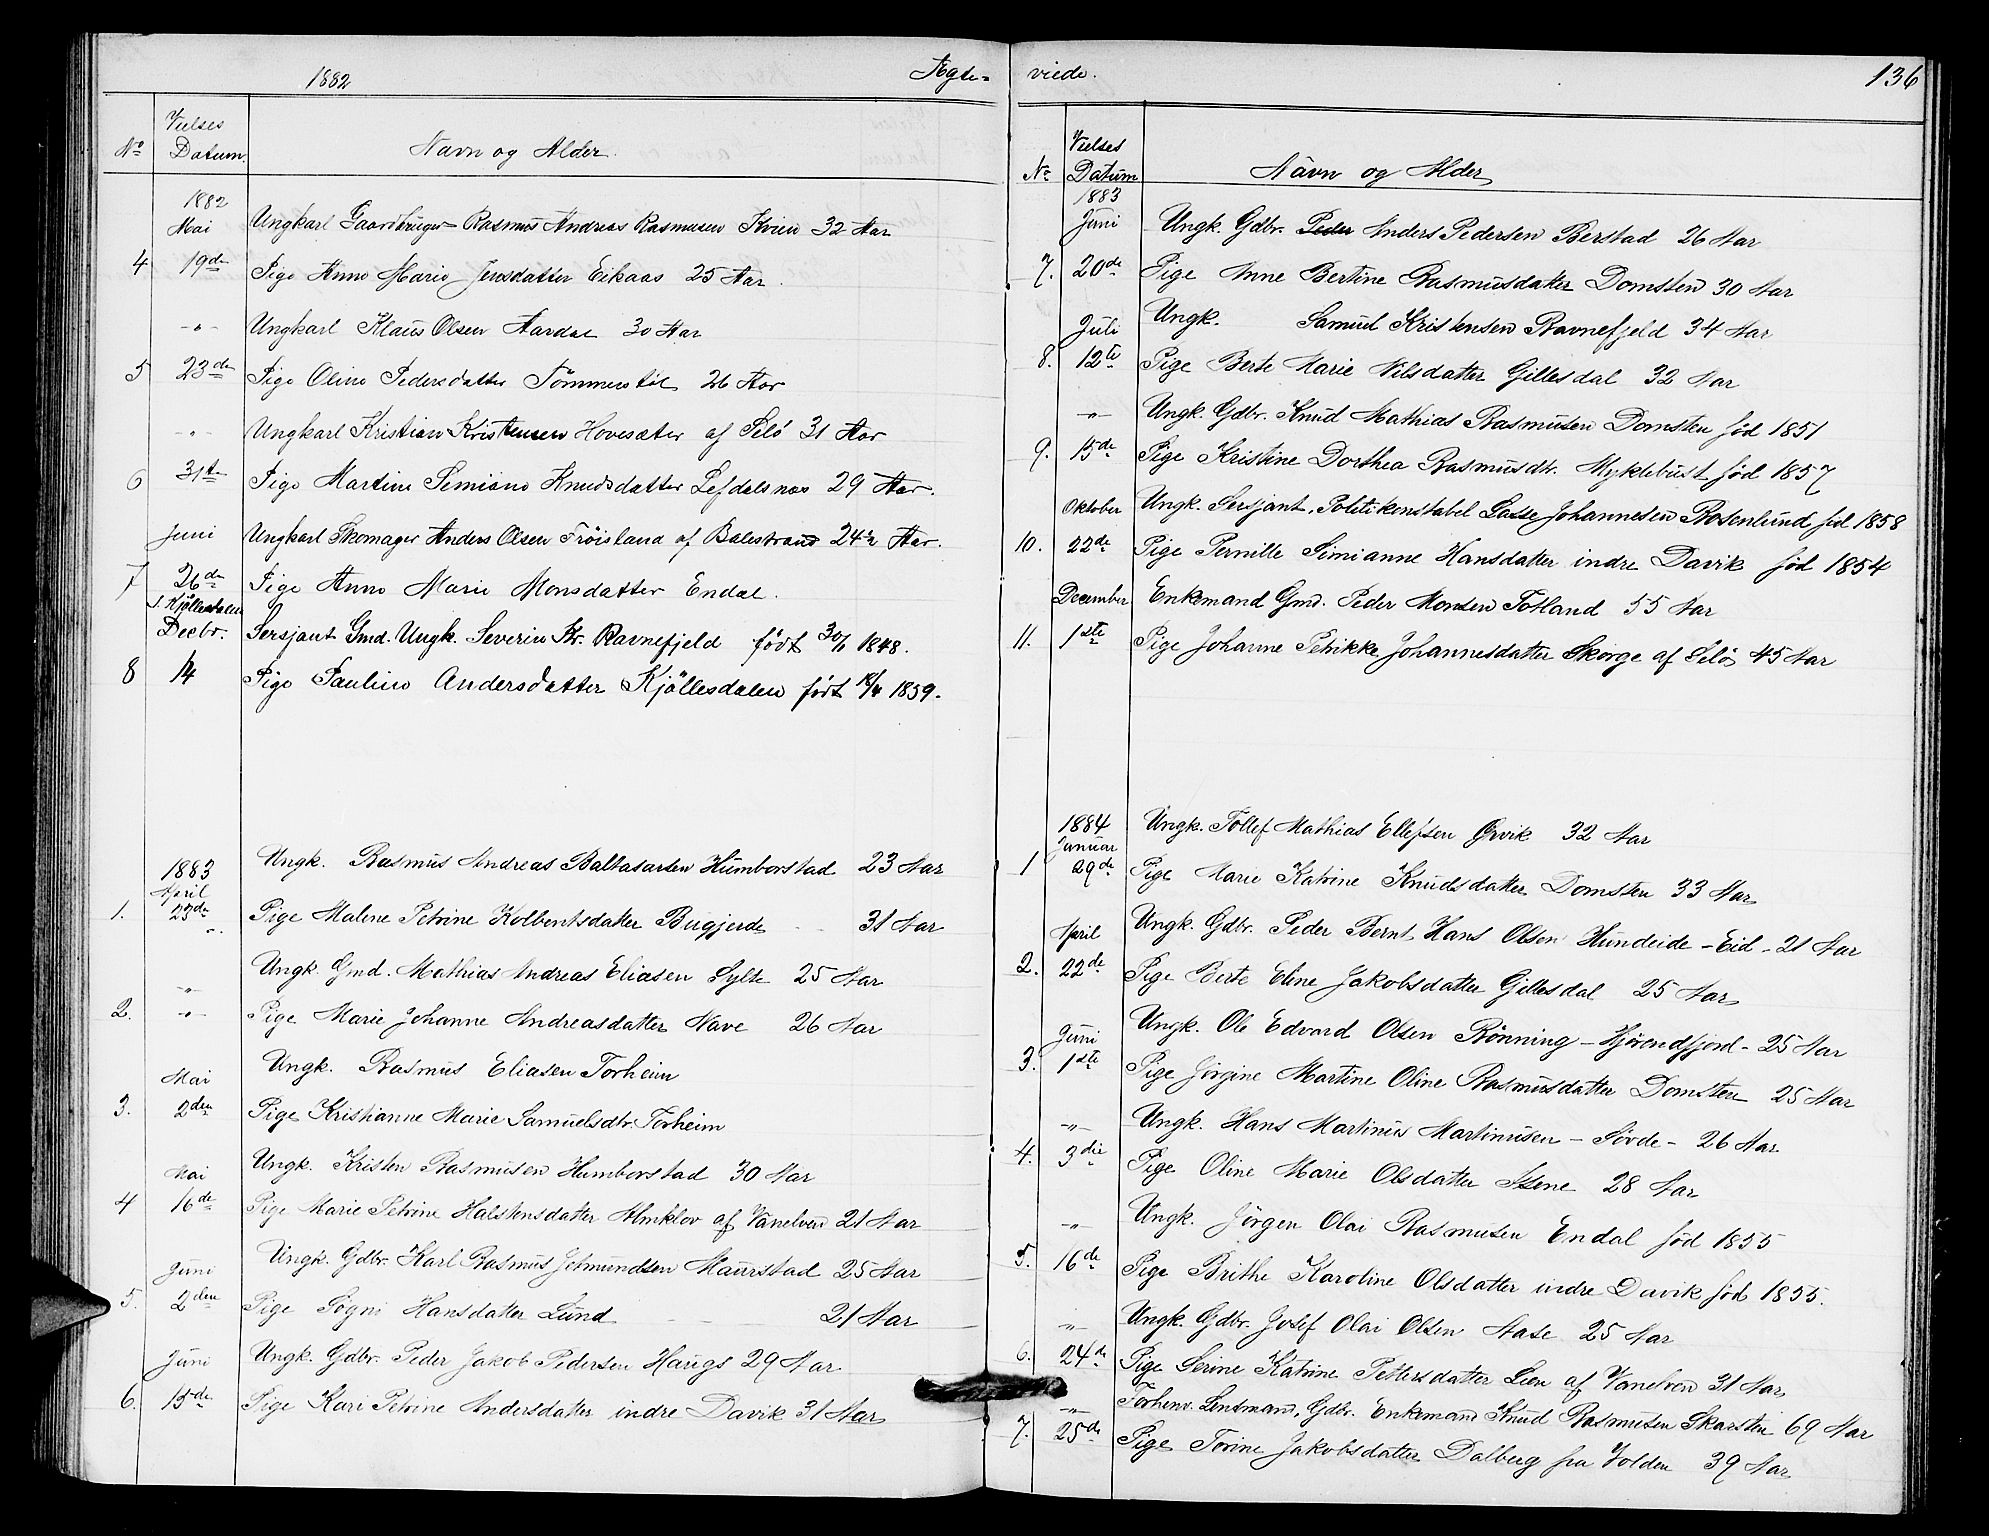 1882
Ægte-
Vielses
No Datum. Navn og Alder.
1882
Mai Ungkarl Gaardbruger Rasmus Andreas Rasmusen Kvien 32 Aar
4 19de Pige Anne Marie Jensdatter Eikaas 25 Aar.
-"- Ungkarl Klaus Olsen Aardal 30 Aar
5 23de Pige Oline Pedersdatter Tömmerstöl 26 Aar
-"- Ungkarl Kristian Kristensen Hovesæter af Selö 31 Aar
6 31te Pige Martine Semiane Knudsdatter Lefdalsnes 29 Aar.
Juni Ungkarl Skomager Anders Olsen Tröisland af Balestrand 24½ Aar.
7 26de Pige Anne Marie Monsdatter Endal.
i Kjöllesdalen
Decbr. Sersjant Gmd. Ungk. Severin Kr. Ravnefjeld födt 30/1 1848.
8 14 Pige Pauline Andersdatter Kjöllesdalen födt 18/4 1859.
1883 Ungk. Rasmus Andreas Baltasarsen Humborstad 23 Aar
April
1. 23de Pige Malene Petrine Kolbentsdatter Bugjerde 31 Aar
-"- Ungk. Gmd. Mathias Andreas Eliasen Sylte 25 Aar
2. -"- Pige Marie Johanne Andreasdatter Nave 26 Aar
Mai Ungk. Rasmus Eliasen Torheim
3. 2den Pige Kristianne Marie Samuelsdtr. Torheim
Mai Ungk. Kristen Rasmusen Humborstad 30 Aar
4 16de Pige Marie Petrine Halstensdatter Almklov af Vanelven 21 Aar
Juni Ungk. Gdbr. Karl Rasmus Jetmundsen Maurstad 25 Aar
5. 2den Pige Sögni Hansdatter Lund 21 Aar
Juni Ungk. Gdbr. Peder Jakob Pedersen Haugs 29 Aar
6. 15de Pige Kari Petrine Andersdatter indre Davik 31 Aar
viede.
136
Vielses
No Datum Navn og Alder
1883
Juni Ungk. Gdbr. Peder Anders Pedersen Berstad 26 Aar
7. 20de Pige Anne Bertine Rasmusdatter Domsten 30 Aar
Juli Ungk. Samuel Kristensen Ravnefjeld 34 Aar
8. 12te Pige Berte Marie Nilsdatter Gillesdal 32 Aar
-"- Ungk. Gdbr. Knud Mathias Rasmusen Domsten föd 1851
9. 15de Pige Kristine Dorthea Rasmusdtr. Myklebust föd 1857
Oktober Ungk. Sersjant, Politikonstabel Lasse Johannesen Rosenlund föd 1858
10. 22de Pige Pernille Simianne Hansdatter indre Davik föd 1854
December Enkemand Gmd. Peder Monsen Totland 55 Aar
11. 1ste Pige Johanne Petrikke Johannesdatter Skorge af Selö 45 Aar
1884 Ungk. Tollef Mathias Ellefsen Ørvik 32 Aar
Januar
1 29de Pige Marie Katrine Knudsdatter Domsten 33 Aar
April Ungk. Gdbr. Peder Bernt Hans Olsen Hundeide - Eid - 21 Aar
2. 22de Pige Berte Eline Jakobsdatter Gillesdal 25 Aar
Juni Ungk. Ole Edvard Olsen Rönning - Hjörendfjord - 25 Aar
3. 1ste Pige Jörgine Martine Oline Rasmusdatter Domsten 25 Aar
-"- Ungk. Hans Martinus Martinusen - Sövde - 26 Aar
4. 3die Pige Oline Marie Olsdatter Stene 28 Aar
-"- Ungk. Jörgen Olai Rasmusen Endal föd 1855
5. 16de Pige Brithe Karoline Olsdatter indre Davik föd 1855.
-"- Ungk. Gdbr. Josef Olai Olsen Aase 25 Aar
6. 24de Pige Serine Katrine Pettersdatter Lien af Vanelven 31 Aar
-"- Forhenv. Lensmand, Gdbr. Enkemand Knud Rasmusen Skarstein 69 Aar
7. 25de Pige Torine Jakobsdatter Dalberg fra Volden 39 Aar